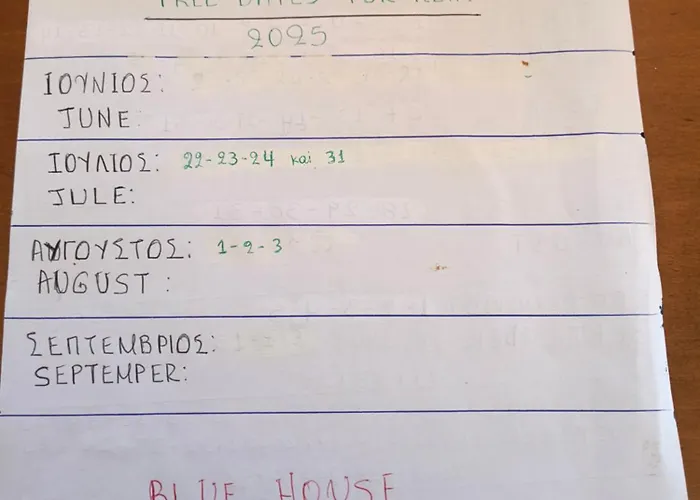 FREE DATES FOR RENT
2025
ΙΟΥΝΙΟΣ:
JUNE:
ΙΟΥΛΙΟΣ: 22-23-24 και 31
JULE:
ΑΥΓΟΥΣΤΟΣ: 1-2-3
AUGUST :
ΣΕΠΤΕΜΒΡΙΟΣ:
SEPTEMPER:
BLUE HOUSE